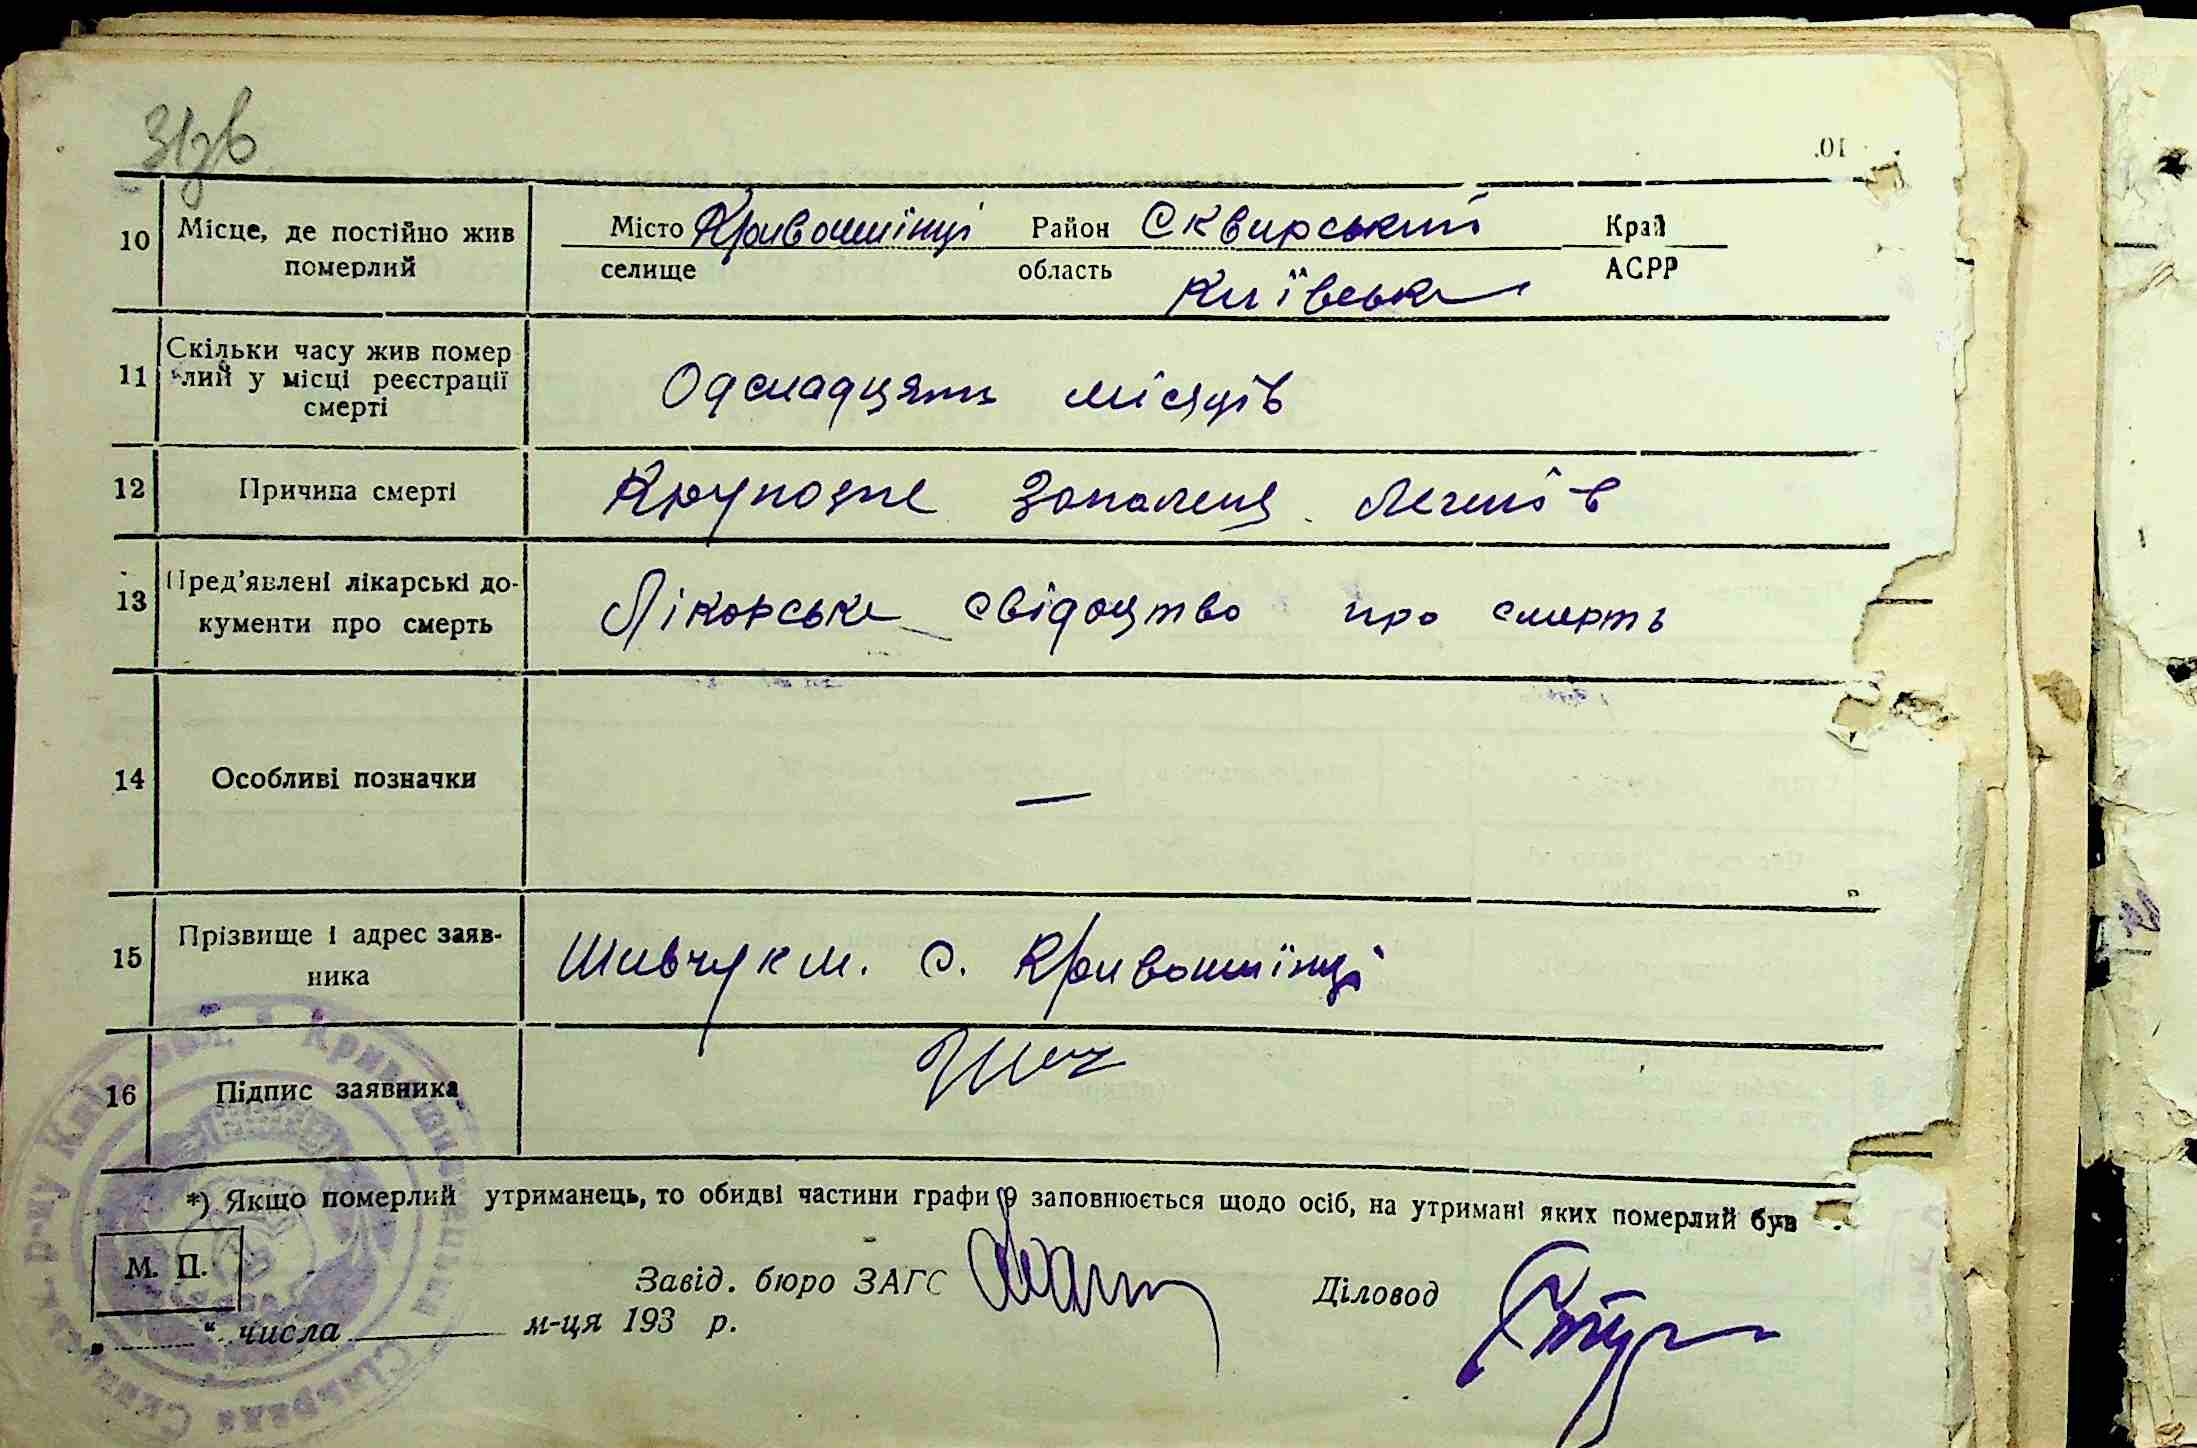 31зв
10 Місце, де постійно жив Місто Кривошиїнці Район Сквирський Край
померлий селище область Київська АСРР
11 Скільки часу жив помер
лий у місці реєстрації
смерті
Оденадцять місяців
12 Причина смерті Крупозне запаленя легенів
13 Пред'явлені лікарські до-
кументи про смерть
Лікарське свідоцтво про смерть
14 Особливі позначки —
15 Прізвище і адрес заяв-
ника
Шивчук М. с. Кривошиїнці
16 Підпис заявника
*) Якщо померлий утриманець, то обидві частини графи 9 заповнюється щодо осіб, на утримані яких померлий був
М. П.
Завід. бюро ЗАГС Діловод
„ “ числа м-ця 193 р.